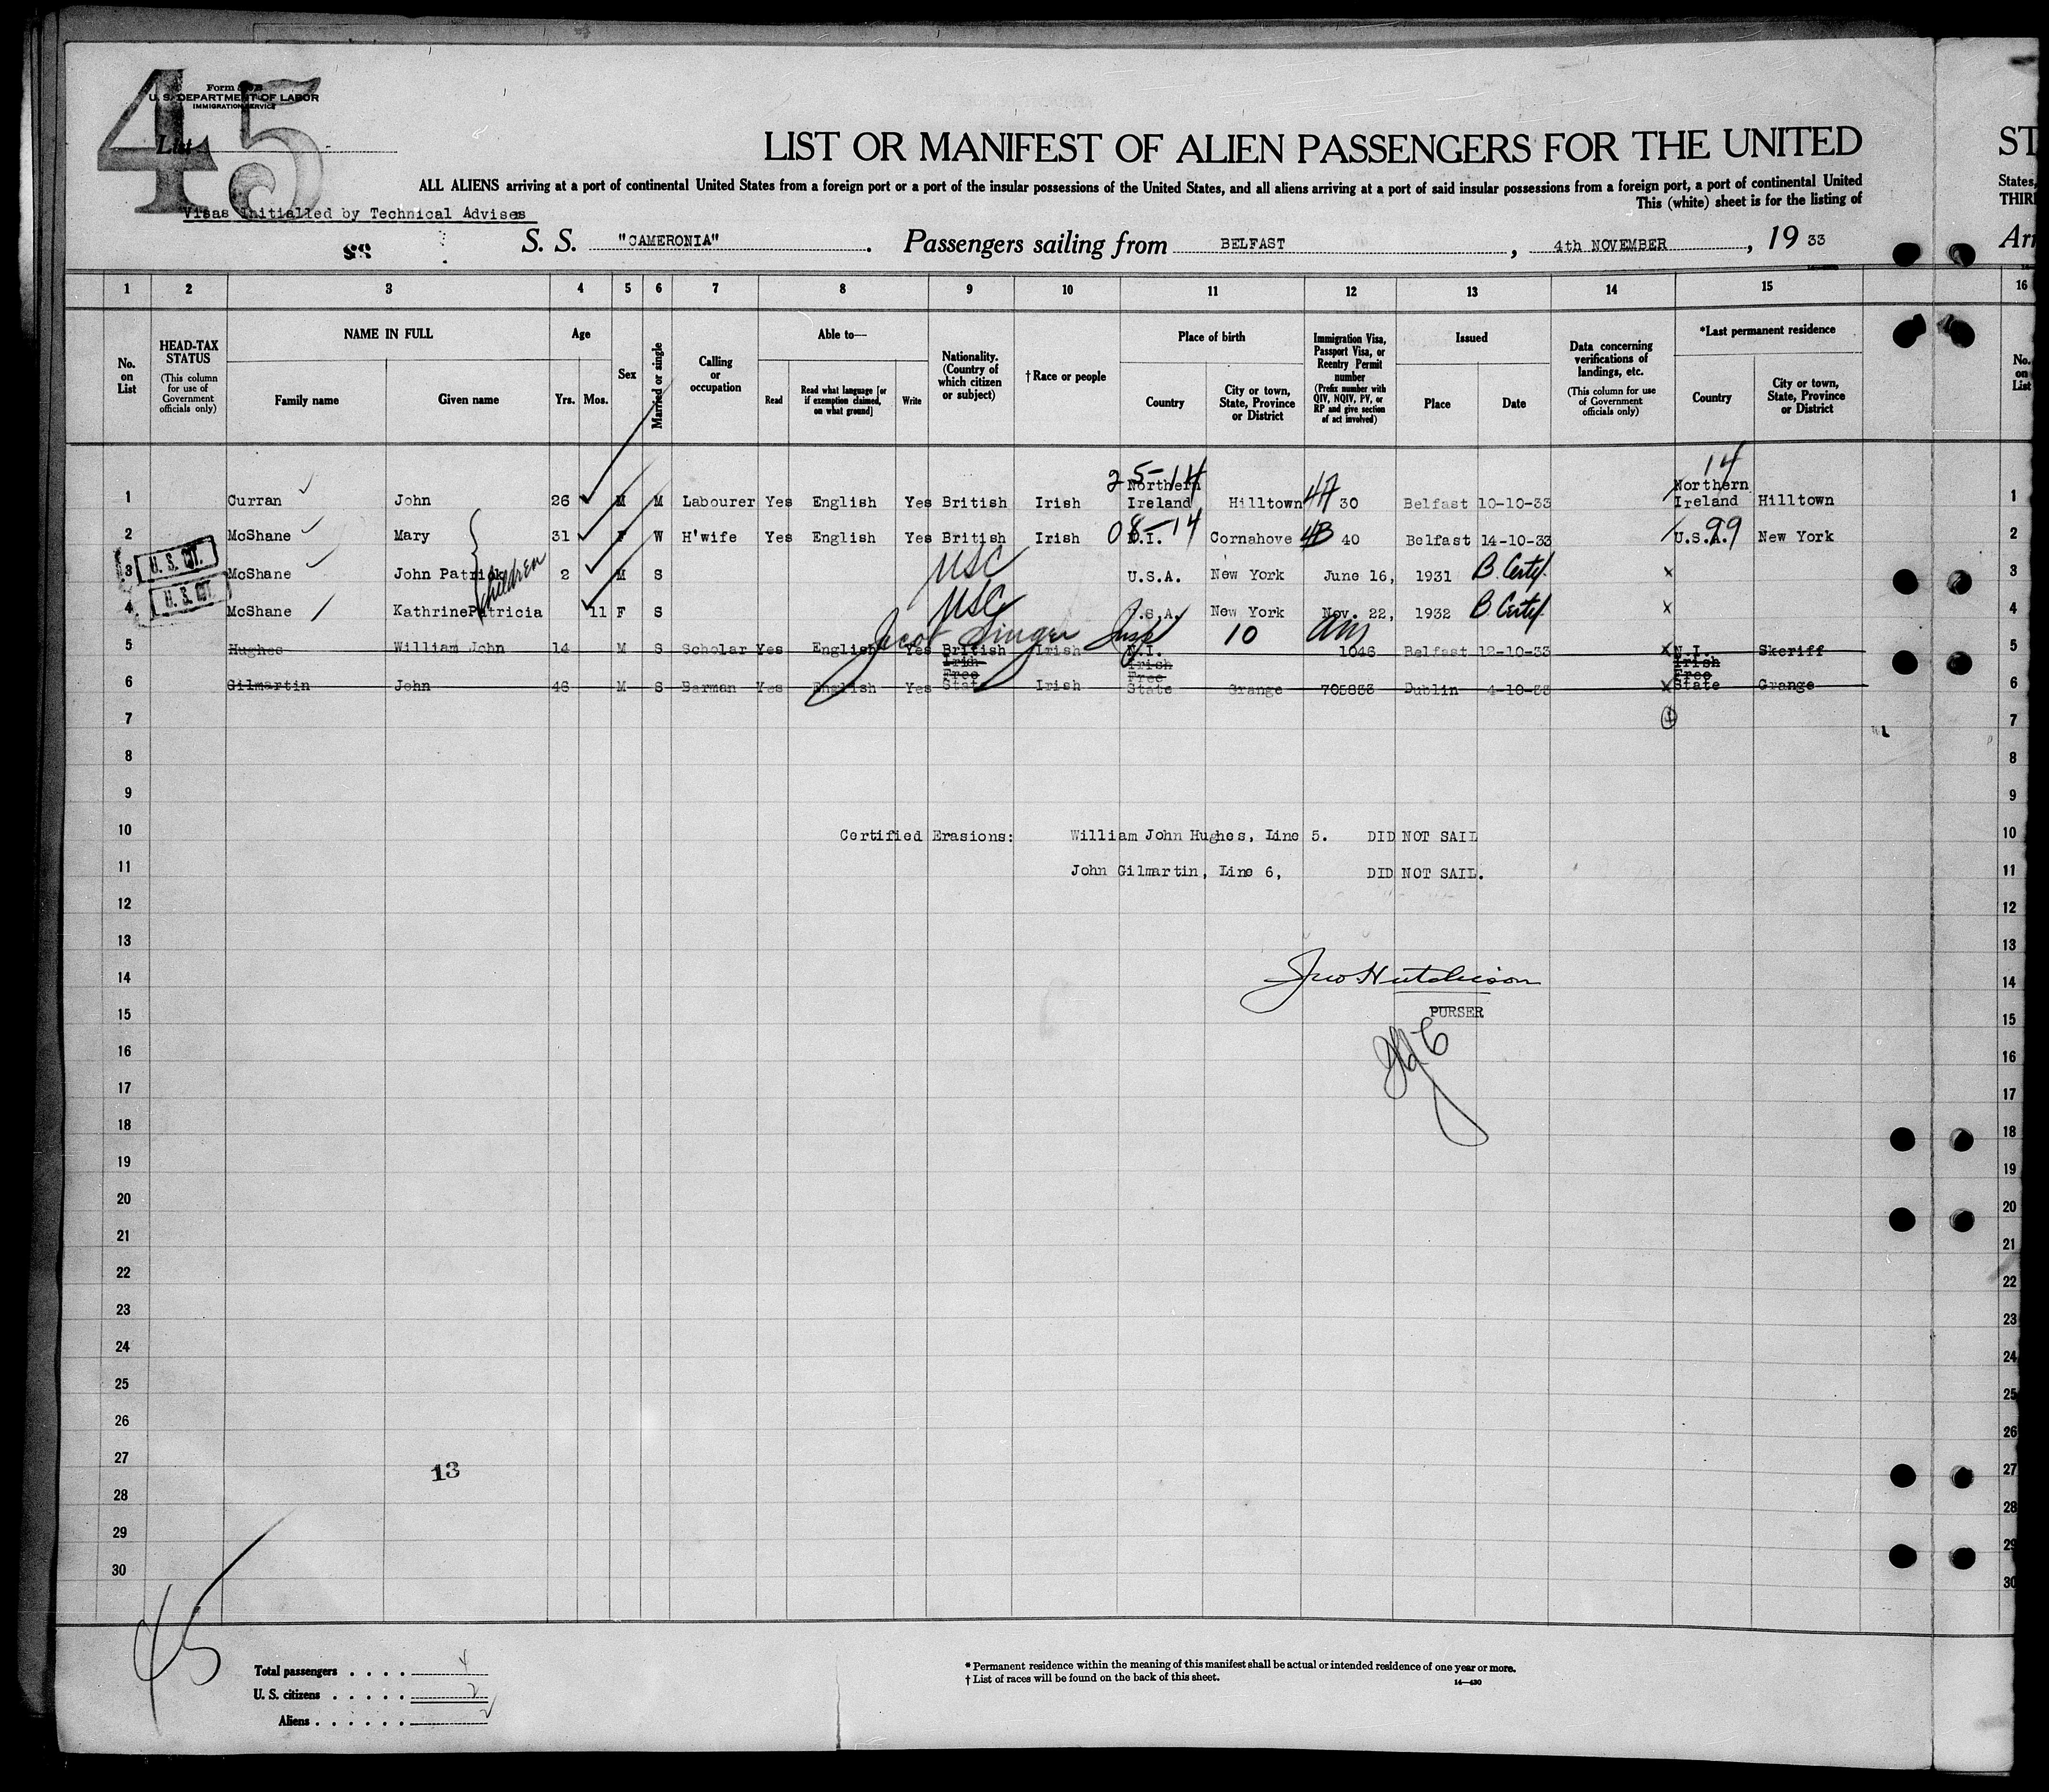 45
Form 500 B
U. S. DEPARTMENT OF LABOR
IMMIGRATION SERVICE
List
LIST OR MANIFEST OF ALIEN PASSENGERS FOR THE UNITED
ST
ALL ALIENS arriving at a port of continental United States from a foreign port or a port of the insular possessions of the United States, and all aliens arriving at a port of said insular possessions from a foreign port, a port of continental United
States,
This (white) sheet is for the listing of
THIR
Visas Initialled by Technical Adviser
SS
S. S. "CAMERONIA". Passengers sailing from BELFAST, 4th NOVEMBER, 19 33
Arr
1 2 3 4 5 6 7 8 9 10 11 12 13 14 15 16
No. on List
HEAD-TAX STATUS (This column for use of Government officials only)
NAME IN FULL
Family name
Given name
Age
Yrs. Mos.
Sex
Married or single
Calling or occupation
Able to—
Read
Read what language [or if exemption claimed, on what ground]
Write
Nationality. (Country of which citizen or subject)
† Race or people
Place of birth
Country
City or town, State, Province or District
Immigration Visa, Passport Visa, or Reentry Permit number (Prefix number with QIV, NQIV, PV, or RP and give section of act involved)
Issued
Place
Date
Data concerning verifications of landings, etc. (This column for use of Government officials only)
*Last permanent residence
Country
City or town, State, Province or District
No. on List
25-14 14
1 Curran John 26 M M Labourer Yes English Yes British Irish Northern Ireland Hilltown 4A 30 Belfast 10-10-33 Northern Ireland Hilltown 1
2 McShane Mary 31 F W H'wife Yes English Yes British Irish 08-14 N.I. Cornahove 4B 40 Belfast 14-10-33 U.S.A. 99 New York 2
U. S. CIT.
3 McShane John Patrick 2 M S USC U.S.A. New York June 16, 1931 B. Certf. x 3
children
U. S. CIT.
4 McShane Kathrine Patricia 11 F S USC U.S.A. New York Nov. 22, 1932 B. Certf. x 4
Jacob Singer Insp 10
5 Hughes William John 14 M S Scholar Yes English Yes British Irish N.I. 1046 Belfast 12-10-33 x N.I. Skeriff 5
6 Gilmartin John 46 M S Barman Yes English Yes Irish Free State Irish Irish Free State Grange 705833 Dublin 4-10-33 x Irish Free State Grange 6
7 7
8 8
9 9
10 Certified Erasions: William John Hughes, Line 5. DID NOT SAIL 10
11 John Gilmartin, Line 6, DID NOT SAIL. 11
12 12
13 13
14 Jno Hutchison 14
15 PURSER 15
16 16
17 17
18 18
19 19
20 20
21 21
22 22
23 23
24 24
25 25
26 26
27 13 27
28 28
29 29
30 30
45
Total passengers . . . . 4
U. S. citizens . . . . . 2
Aliens . . . . . . 2
* Permanent residence within the meaning of this manifest shall be actual or intended residence of one year or more.
† List of races will be found on the back of this sheet.
14—430